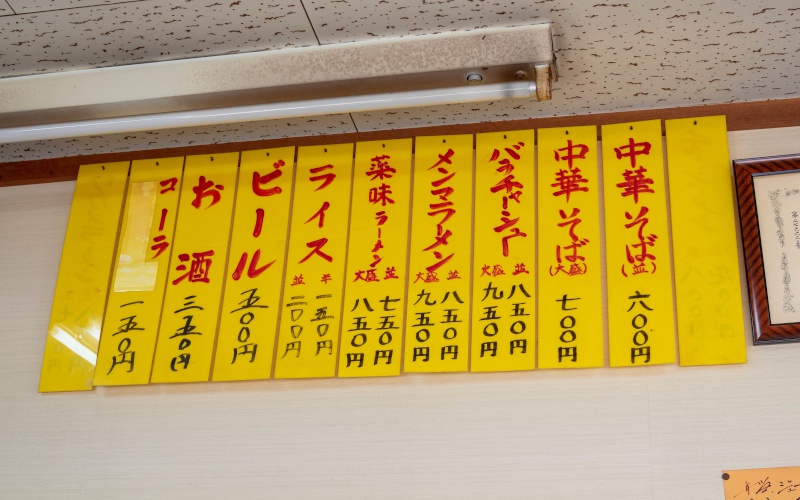 中華そば(並)
六〇〇円
中華そば(大盛)
七〇〇円
バラチャーシュー
並 八五〇円
大盛 九五〇円
メンマラーメン
並 八五〇円
大盛 九五〇円
薬味ラーメン
並 七五〇円
大盛 八五〇円
ライス
半 一五〇円
並 二〇〇円
ビール
五〇〇円
お酒
三五〇円
コーラ
一五〇円